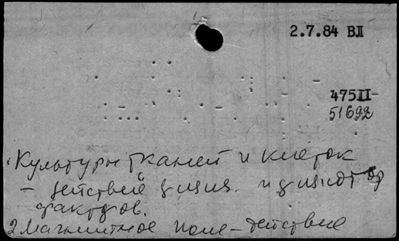 2.7.84 ВЛ
475П-
51692
1. Культуры тканей и клеток
- действие физич. и
факторов.
2. Магнитное поле - действие